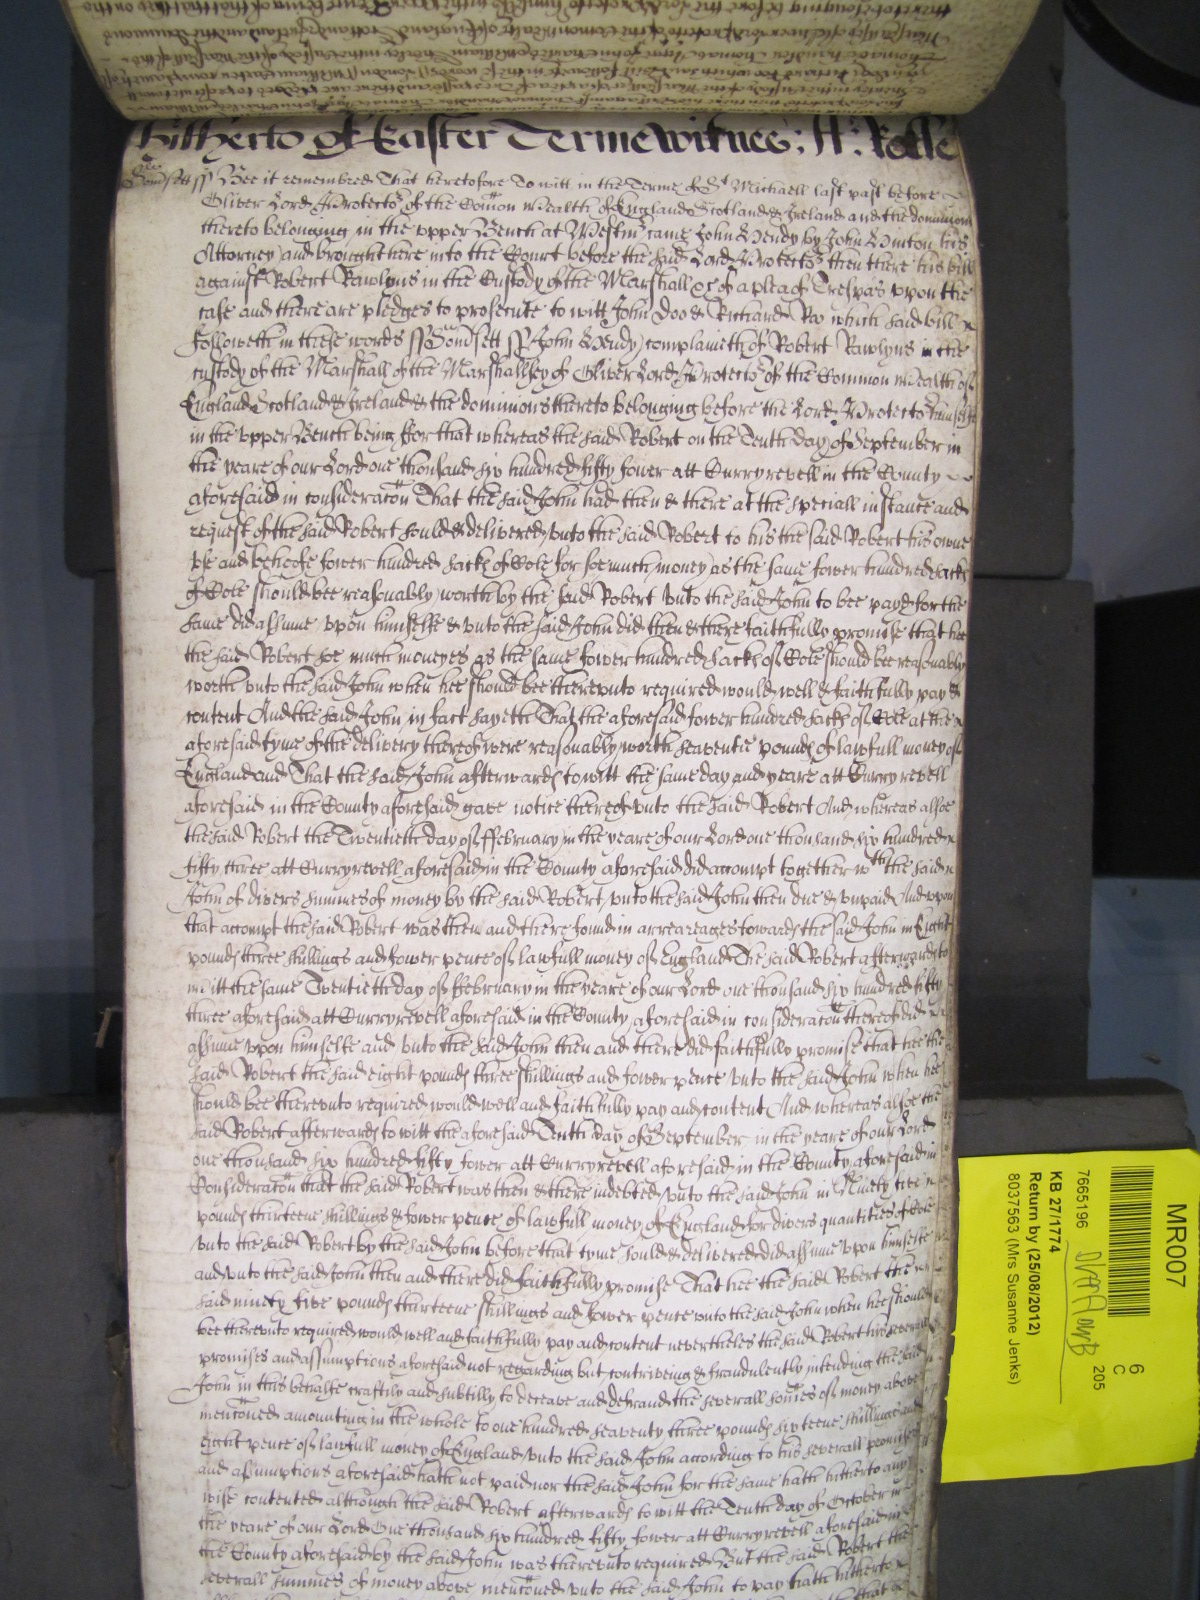 hitherto of Easter Terme witnes: H: Rolle
Somsett ss Bee it remembred That heretofore To witt in the Terme of St Michaell last past before
Oliver Lord Protector of the Comon Wealth of England Scotland & Ireland and the dominions
thereto belonging in the upper Bench at Westmr came John Hendy by John Hunton his
Attorney and brought here into the Court before the said Lord Protector then there his bill
against Robert Rawlyns in the Custody of the Marshall &c of a plea of Trespas upon the
case and there are pledges to prosecute to witt John Doo & Richard Roo which said bill
followeth in these words ss Somsett ss John Hendy complaineth of Robert Rawlyns in the
custody of the Marshall of the Marshallsey of Oliver Lord Protector of the Common Wealth of
England Scotland & Ireland & the dominions thereto belonging before the Lord Protector himselfe
in the upper Bench being ffor that whereas the said Robert on the Tenth day of September in
the yeare of our Lord one thousand six hundred fifty fower att Curryrevell in the County
aforesaid in consideracon That the said John had then & there at the speciall instance and
request of the said Robert sould & delivered unto the said Robert to his the said Robert his owne
use and behoofe fower hundred sacks of Cole for soe much money as the same fower hundred sacks
of Cole should bee reasonably worth by the said Robert unto the said John to bee payd for the
same did assume upon himselfe & unto the said John did then & there faithfully promise that hee
the said Robert soe much moneyes as the same fower hundred sacks of Cole should bee reasonably
worth unto the said John when hee should bee thereunto required would well & faithfully pay &
content And the said John in fact sayeth That the aforesaid fower hundred sacks of Cole at the
aforesaid tyme of the delivery thereof were reasonably worth seaventie pounds of lawfull money of
England and That the said John afterwards to witt the same day and yeare att Curryrevell
aforesaid in the County aforesaid gave notice thereof unto the said Robert And whereas alsoe
the said Robert the Twentieth day of ffebruary in the yeare of our Lord one thousand six hundred
fifty three att Curryrevell aforesaid in the County aforesaid did accompt together wth the said
John of divers summes of money by the said Robert unto the said John then due & unpaid And upon
that accompt the said Robert was then and there found in arreareages towards the said John in Eight
pounds three shillings and fower pence of lawfull money of England The said Robert afterwards to
witt the same Twentieth day of ffebruary in the yeare of our Lord one thousand six hundred fifty
three aforesaid att Curryrevell aforesaid in the County aforesaid in consideracon thereof did
assume upon himselfe and unto the said John then and there did faithfully promise that hee the
said Robert the said eight pounds three shillings and fower pence unto the said John when hee
should bee thereunto required would well and faithfully pay and content And whereas alsoe the
said Robert afterwards to witt the aforesaid Tenth day of September in the yeare of our Lord
one thousand six hundred fifty fower att Curryrevell aforesaid in the County aforesaid in
Consideracon that the said Robert was then & there indebted unto the said John in Ninety five
pounds thirteene shillings & fower pence of lawfull money of England for divers quantities of Cole
unto the said Robert by the said John before that tyme sould & delivered did assume upon himselfe
and unto the said John then and there did faithfully promise That hee the said Robert the
said ninety five pounds thirteene shillings and fower pence unto the said John when hee should
bee thereunto required would well and faithfully pay and content nevertheles the said Robert his severall
promises and assumptions aforesaid not regarding but contriveing & fraudulently intending the said
John in this behalfe craftily and subtilly to deceave and defraud the severall somes of money above
mencioned amounting in the whole to one hundred seaventy three pounds sixteene shillings and
eight pence of lawfull money of England unto the said John according to his severall promises
and assumptions aforesaid hath not paid nor the said John for the same hath hitherto any
wise contented although the said Robert afterwards to witt the Tenth day of October in
the yeare of our Lord One thousand six hundred fifty fower att Curryrevell aforesaid in
the County aforesaid by the said John was thereunto required But the said Robert the
severall summes of money above mencioned unto the said John to pay hath hitherto
MR007
6
C
205
7665196
KB 27/1774
Return by (25/08/2012)
8037563 (Mrs Susanne Jenks)